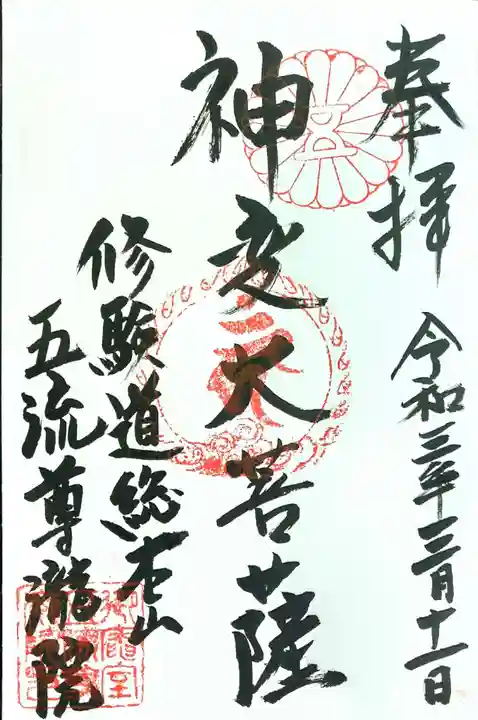 奉拝
令和三年三月十一日
神変大菩薩
修験道総本山
五流尊瀧院
五